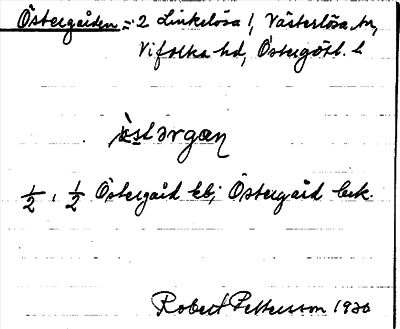 Östergården = 2 Linkelösa 1, Västerlösa sn,
Vifolka hd, Östergötl. l
östərgæn
1/2, 1/2 Östergård Eb; Östergård bek.
Robert Pettersson 1930